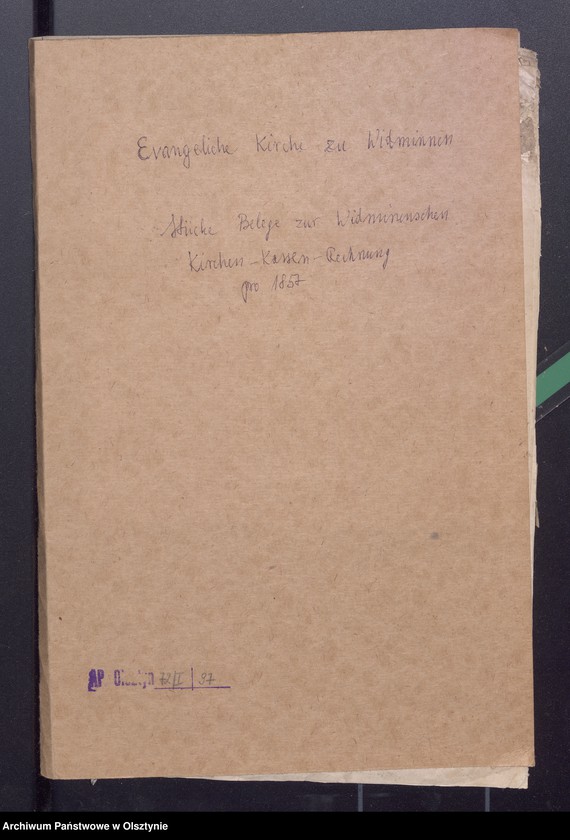 Evangeliche Kirche zu Widminnen
Stücke Belege zur Widminnenschen
Kirchen-Kassen-Rechnung
pro 1857
AP Olsztyn 72/I 37
Archiwum Państwowe w Olsztynie